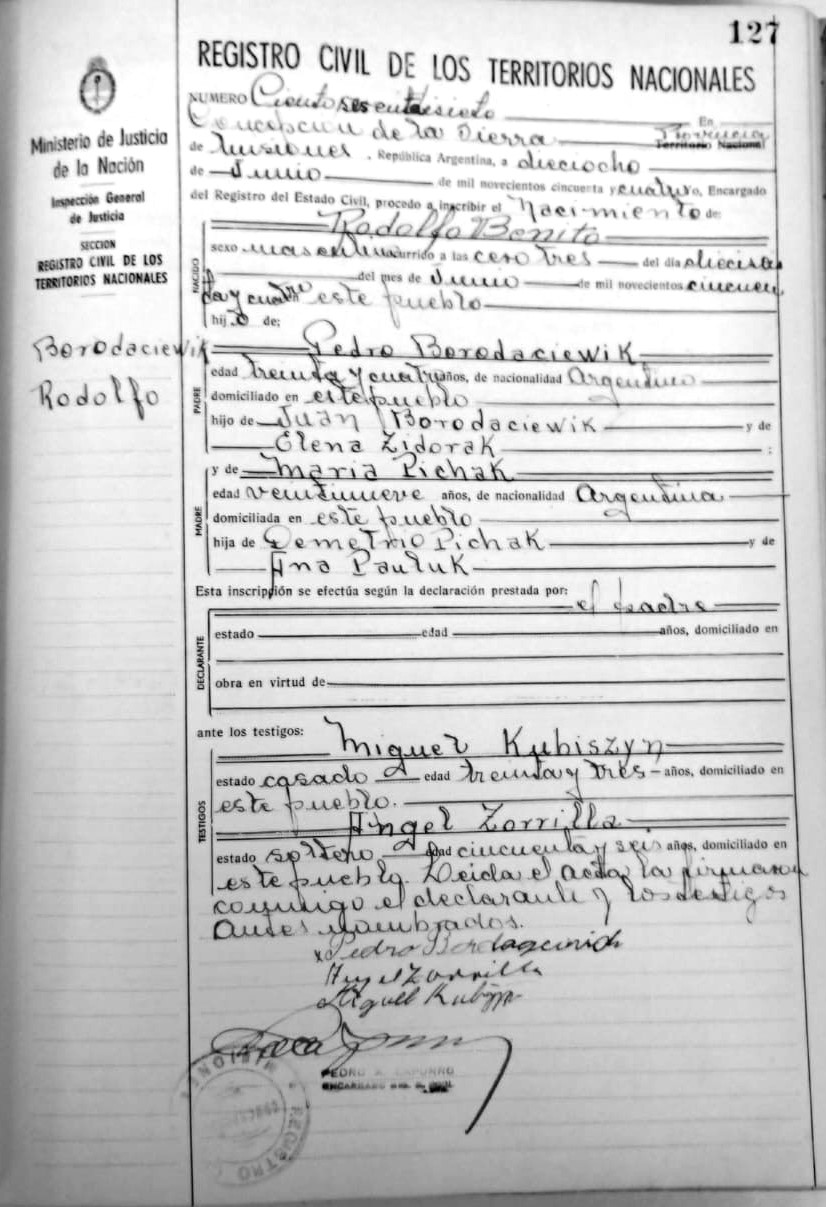 127
REGISTRO CIVIL DE LOS TERRITORIOS NACIONALES
Ministerio de Justicia
de la Nación
Inspección General
de Justicia
SECCION
REGISTRO CIVIL DE LOS
TERRITORIOS NACIONALES
Borodaciewik
Rodolfo
NUMERO Ciento sesentisiete En
Concepcion de la Sierra Provincia Territorio Nacional
de Misiones, República Argentina, a dieciocho
de Junio de mil novecientos cincuenta y cuatro, Encargado
del Registro del Estado Civil, procedo a inscribir el Nacimiento de:
Rodolfo Benito
NACIDO
sexo masculino ocurrido a las cero tres del día
del mes de Junio de mil novecientos cincuen
ta y cuatro este pueblo
hijo de:
Pedro Borodaciewik
PADRE
edad treinta y cuatro años, de nacionalidad Argentino
domiciliado en este pueblo
hijo de Juan Borodaciewik y de
Elena Zidorak ;
y de Maria Pichak
MADRE
edad veintinueve años, de nacionalidad Argentina
domiciliada en este pueblo
hija de Demetrio Pichak y de
Ana Pauluk
Esta inscripción se efectúa según la declaración prestada por:
el padre
DECLARANTE
estado edad años, domiciliado en
obra en virtud de
ante los testigos: Miguel Kubiszyn
TESTIGOS
estado casado edad treinta y tres años, domiciliado en
este pueblo.
Angel Zorrilla
estado soltero edad cincuenta y seis años, domiciliado en
este pueblo. Leida el acta la firmaron
conmigo el declarante y los testigos
antes nombrados.
x Pedro
Angel Zorrilla
Miguel
PEDRO A. CAPURRO
ENCARGADO
MISIONES
REGISTRO